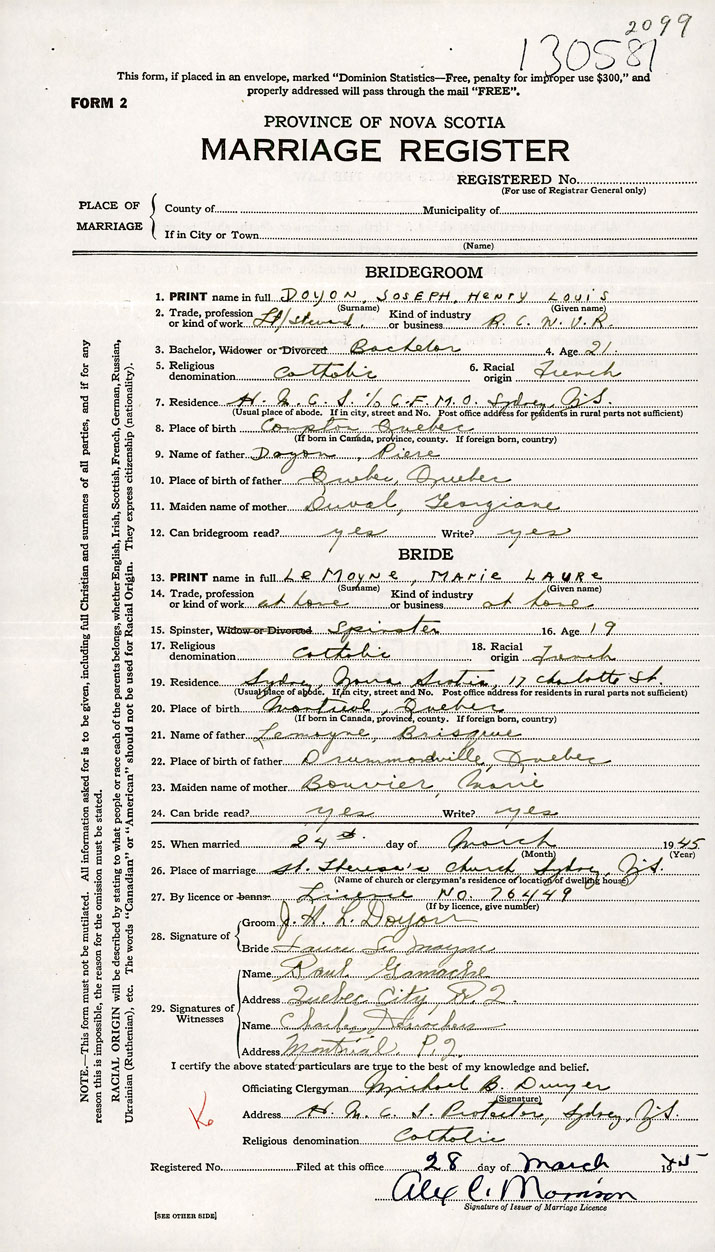 2099
130581
This form, if placed in an envelope, marked "Dominion Statistics—Free, penalty for improper use $300," and
properly addressed will pass through the mail "FREE".
FORM 2
PROVINCE OF NOVA SCOTIA
MARRIAGE REGISTER
REGISTERED No.
(For use of Registrar General only)
PLACE OF MARRIAGE
County of Municipality of
If in City or Town
(Name)
BRIDEGROOM
1. PRINT name in full DOYON, JOSEPH, HENRY LOUIS
(Surname) (Given name)
2. Trade, profession or kind of work Lt/Steward. Kind of industry or business R. C. N. V. R.
3. Bachelor, Widower or Divorced Bachelor 4. Age 21.
5. Religious denomination Catholic 6. Racial origin French
7. Residence H. M. C. S. % G. F. M. O. Sydney, N.S.
(Usual place of abode. If in city, street and No. Post office address for residents in rural parts not sufficient)
8. Place of birth Compton Quebec
(If born in Canada, province, county. If foreign born, country)
9. Name of father Doyon, Piere
10. Place of birth of father Quebec, Quebec
11. Maiden name of mother Duval, Georgiane
12. Can bridegroom read? yes Write? yes
BRIDE
13. PRINT name in full LEMOYNE, MARIE LAURE
(Surname) (Given name)
14. Trade, profession or kind of work at home Kind of industry or business at home
15. Spinster, Widow or Divorced Spinster 16. Age 19
17. Religious denomination Catholic 18. Racial origin French
19. Residence Sydney, Nova Scotia, 17 Charlotte St.
(Usual place of abode. If in city, street and No. Post office address for residents in rural parts not sufficient)
20. Place of birth Montreal, Quebec
(If born in Canada, province, county. If foreign born, country)
21. Name of father Lemoyne,
22. Place of birth of father Drummondville, Quebec
23. Maiden name of mother Bouvier, Marie
24. Can bride read? yes Write? yes
25. When married 24th. day of March 1945
(Month) (Year)
26. Place of marriage St. Theresa's Church Sydney, N.S.
(Name of church or clergyman's residence or location of dwelling house)
27. By licence or banns License NO. 76449
(If by licence, give number)
28. Signature of
Groom J. H. L. Doyon
Bride Laure Le Moyne
29. Signatures of Witnesses
Name Paul Gamache
Address Quebec City, P.Q.
Name Charles
Address Montréal. P.Q.
I certify the above stated particulars are true to the best of my knowledge and belief.
Officiating Clergyman Michael B. Dwyer
(Signature)
Address H. M. C. S Protector, Sydney, N.S.
Religious denomination Catholic
Registered No. Filed at this office 28 day of March 1945
Alex C. Morrison
Signature of Issuer of Marriage Licence
[SEE OTHER SIDE]
NOTE.—This form must not be mutilated. All information asked for is to be given, including full Christian and surnames of all parties, and if for any
reason this is impossible, the reason for the omission must be stated.
RACIAL ORIGIN will be described by stating to what people or race each of the parents belongs, whether English, Irish, Scottish, French, German, Russian,
Ukrainian (Ruthenian), etc. The words "Canadian" or "American" should not be used for Racial Origin. They express citizenship (nationality).